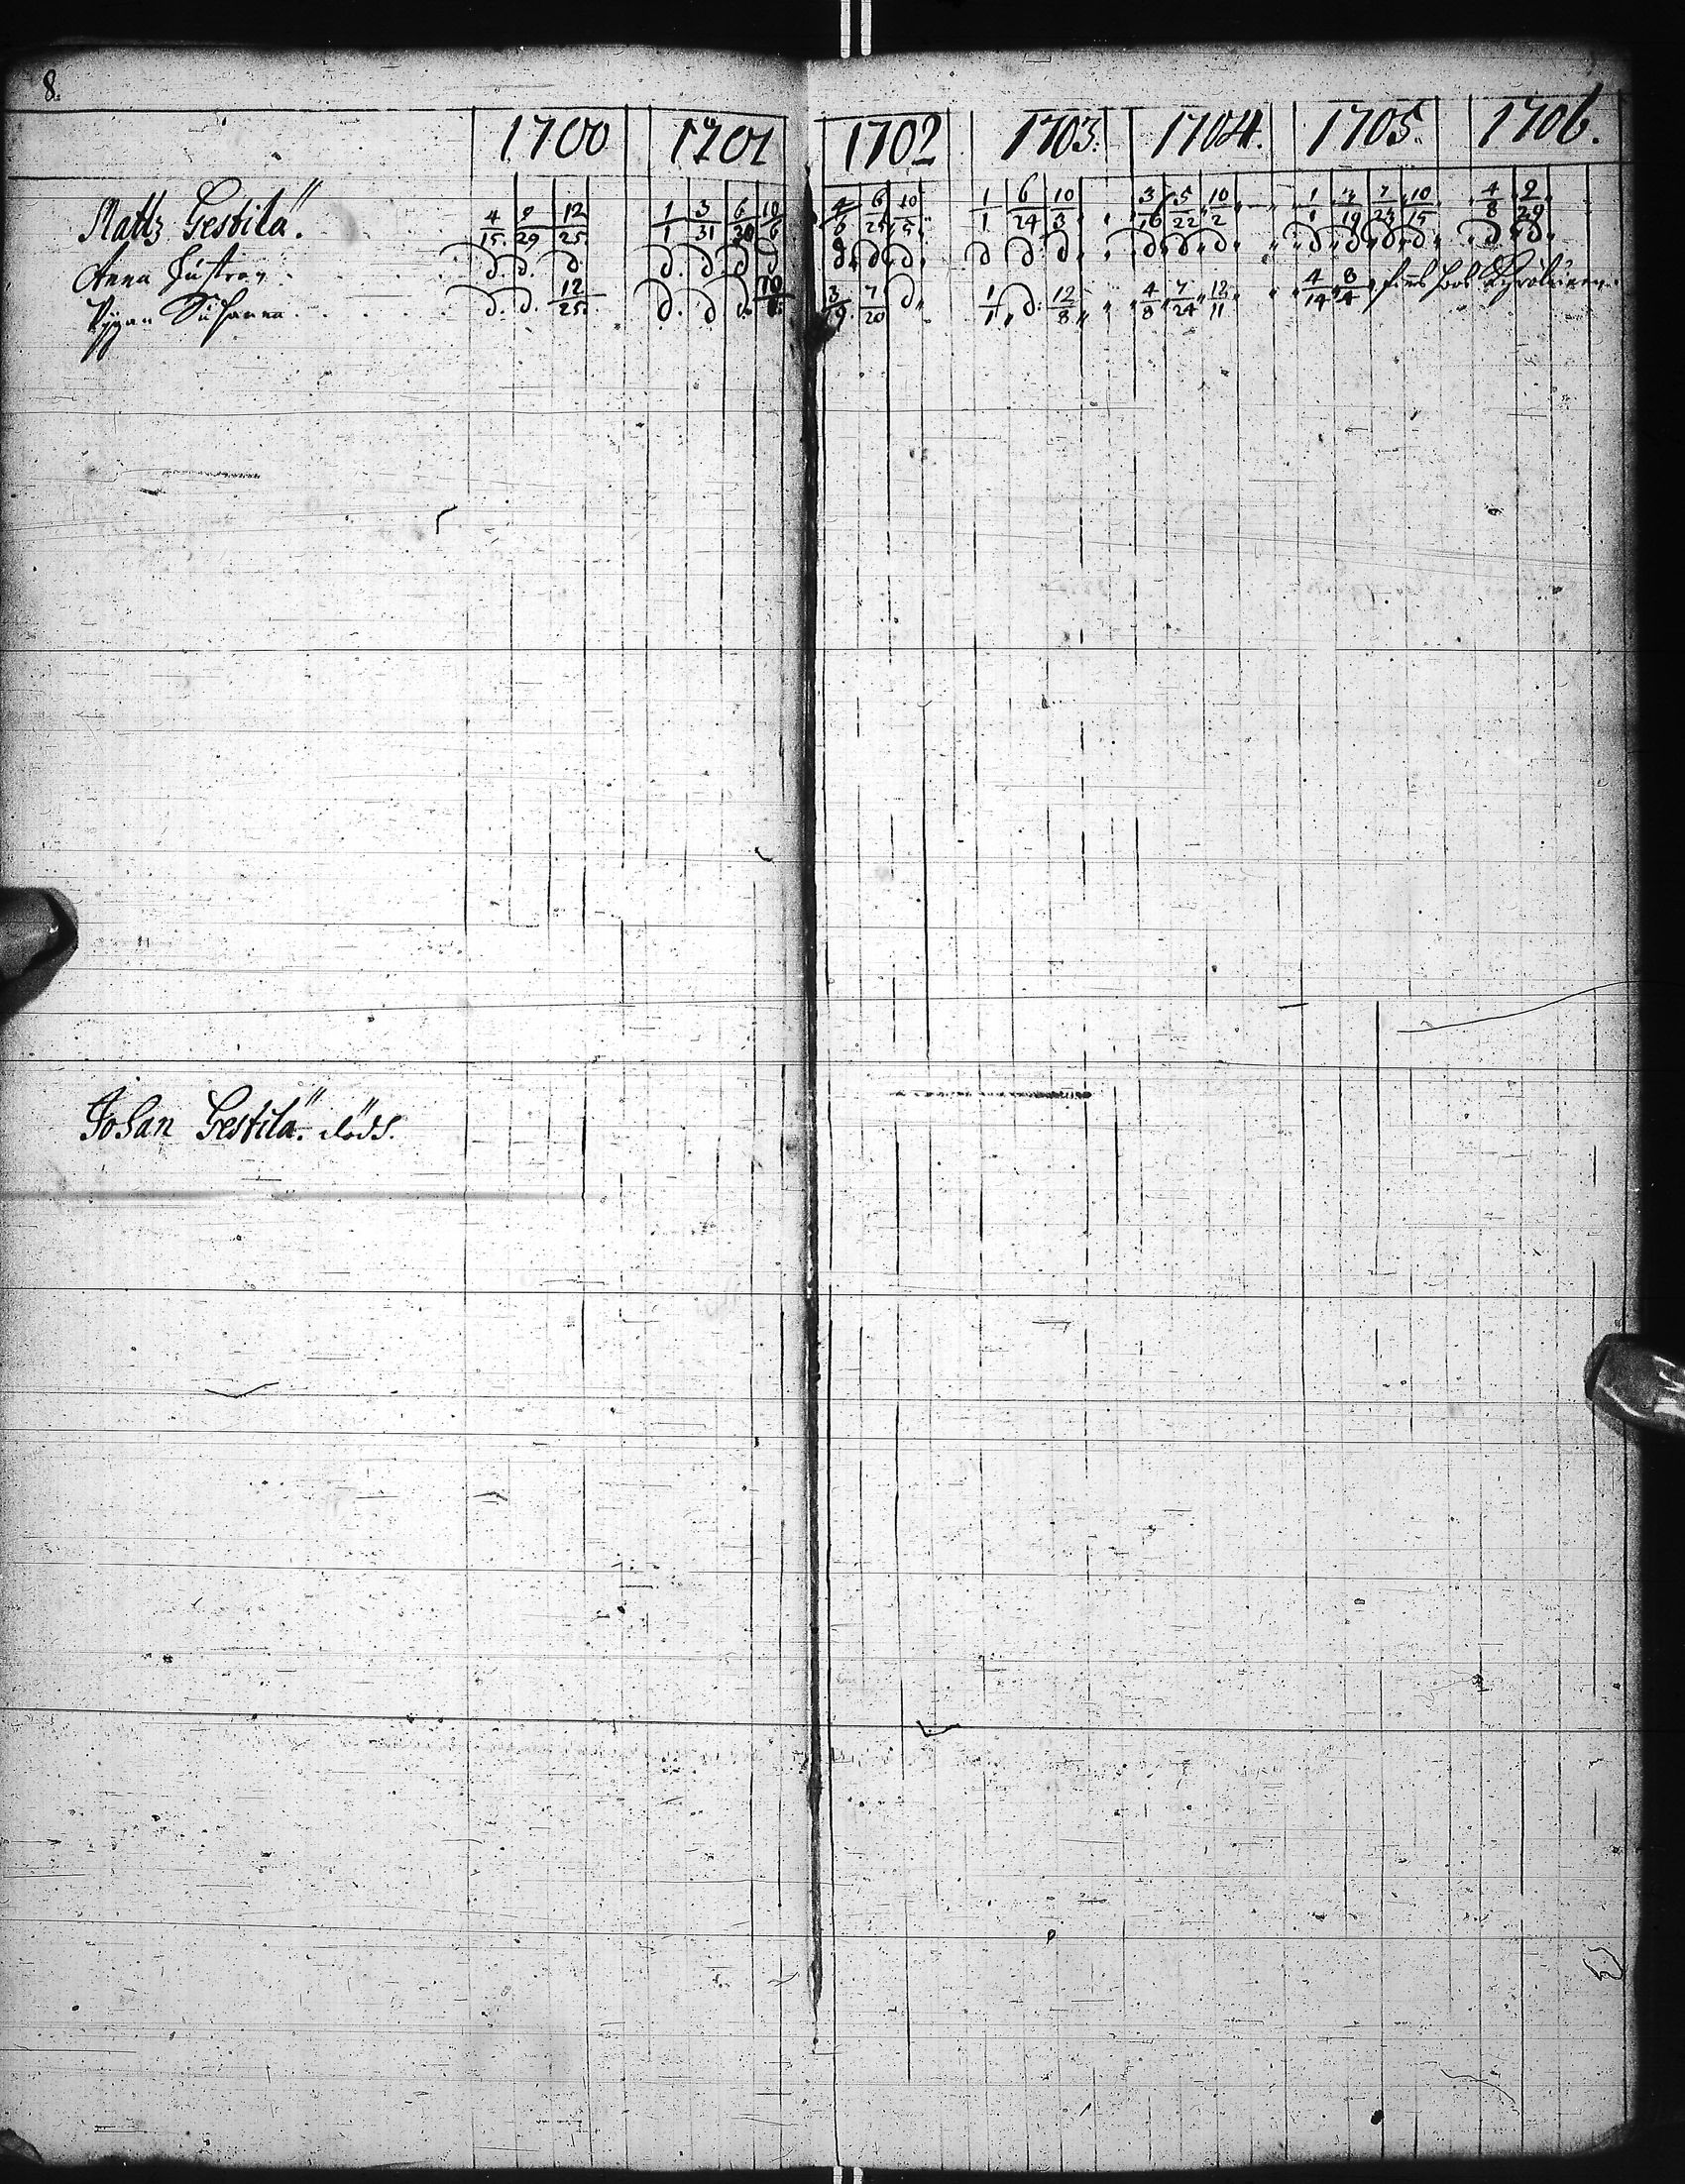 8.
1700 1701 1702 1703. 1704. 1705. 1706.
Mattz Gestilä. 4/15. 9/29 12/25. 1/1 3/31 6/20 10/6 4/6 6/25 10/5 1/1 6/24 10/3 3/16 5/22 10/2 1/1 3/19 7/23 10/15 4/8 9/29
Anna hustrun d. d. d. d. d. d d d. d. d. d d d d. d. d. d. d. d. d. d. d.
Pijgan Susanna d. d. 12/25. d. d. d. 10/6 3/9 7/20 d. 1/1 d. 12/8 4/8 7/24 12/11 4/14 8/4 hoos
Johan Gestilä. ödes.